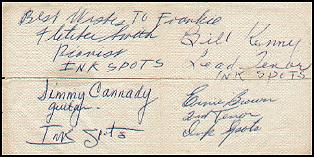 Best Wishes To Frankie
Fletcher Smith
Pianist
INK SPOTS
Bill Kenny
Lead Tenor
INK SPOTS
Jimmy Cannady
guitar.
Ink Spots
Ernie Brown
2nd Tenor
Ink Spots